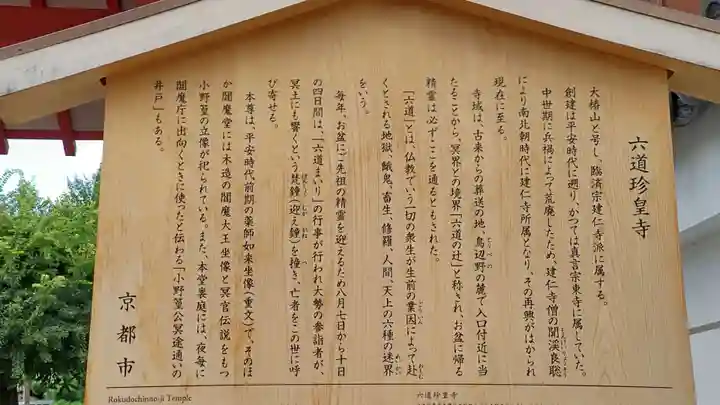 六道珍皇寺
大椿山と号し、臨済宗建仁寺派に属する。
創建は平安時代に遡り、かつては真言宗東寺に属していた。
中世期に兵禍によって荒廃したため、建仁寺僧の聞溪良聡
により南北朝時代に建仁寺所属となり、その再興がはかられ
現在に至る。
寺域は、古来からの葬送の地、鳥辺野の麓で入口付近に当
たることから、冥界との境界「六道の辻」と称され、お盆に帰る
精霊は必ずここを通るともされた。
「六道」とは、仏教でいう一切の衆生が生前の業因によって赴
くとされる地獄、餓鬼、畜生、修羅、人間、天上の六種の迷界
をいう。
毎年、お盆にご先祖の精霊を迎えるため八月七日から十日
の四日間は、「六道まいり」の行事が行われ大勢の参詣者が、
冥土にも響くという梵鐘(迎え鐘)を撞き、亡者をこの世に呼
び寄せる。
本尊は、平安時代前期の薬師如来坐像(重文)で、そのほ
か閻魔堂には木造の閻魔大王坐像と冥官伝説をもつ
小野篁の立像が祀られている。また、本堂裏庭には、夜毎に
閻魔庁に出向くときに使ったと伝わる「小野篁公冥途通いの
井戸」もある。
京都市
Rokudochinno-ji Temple
六道珍皇寺